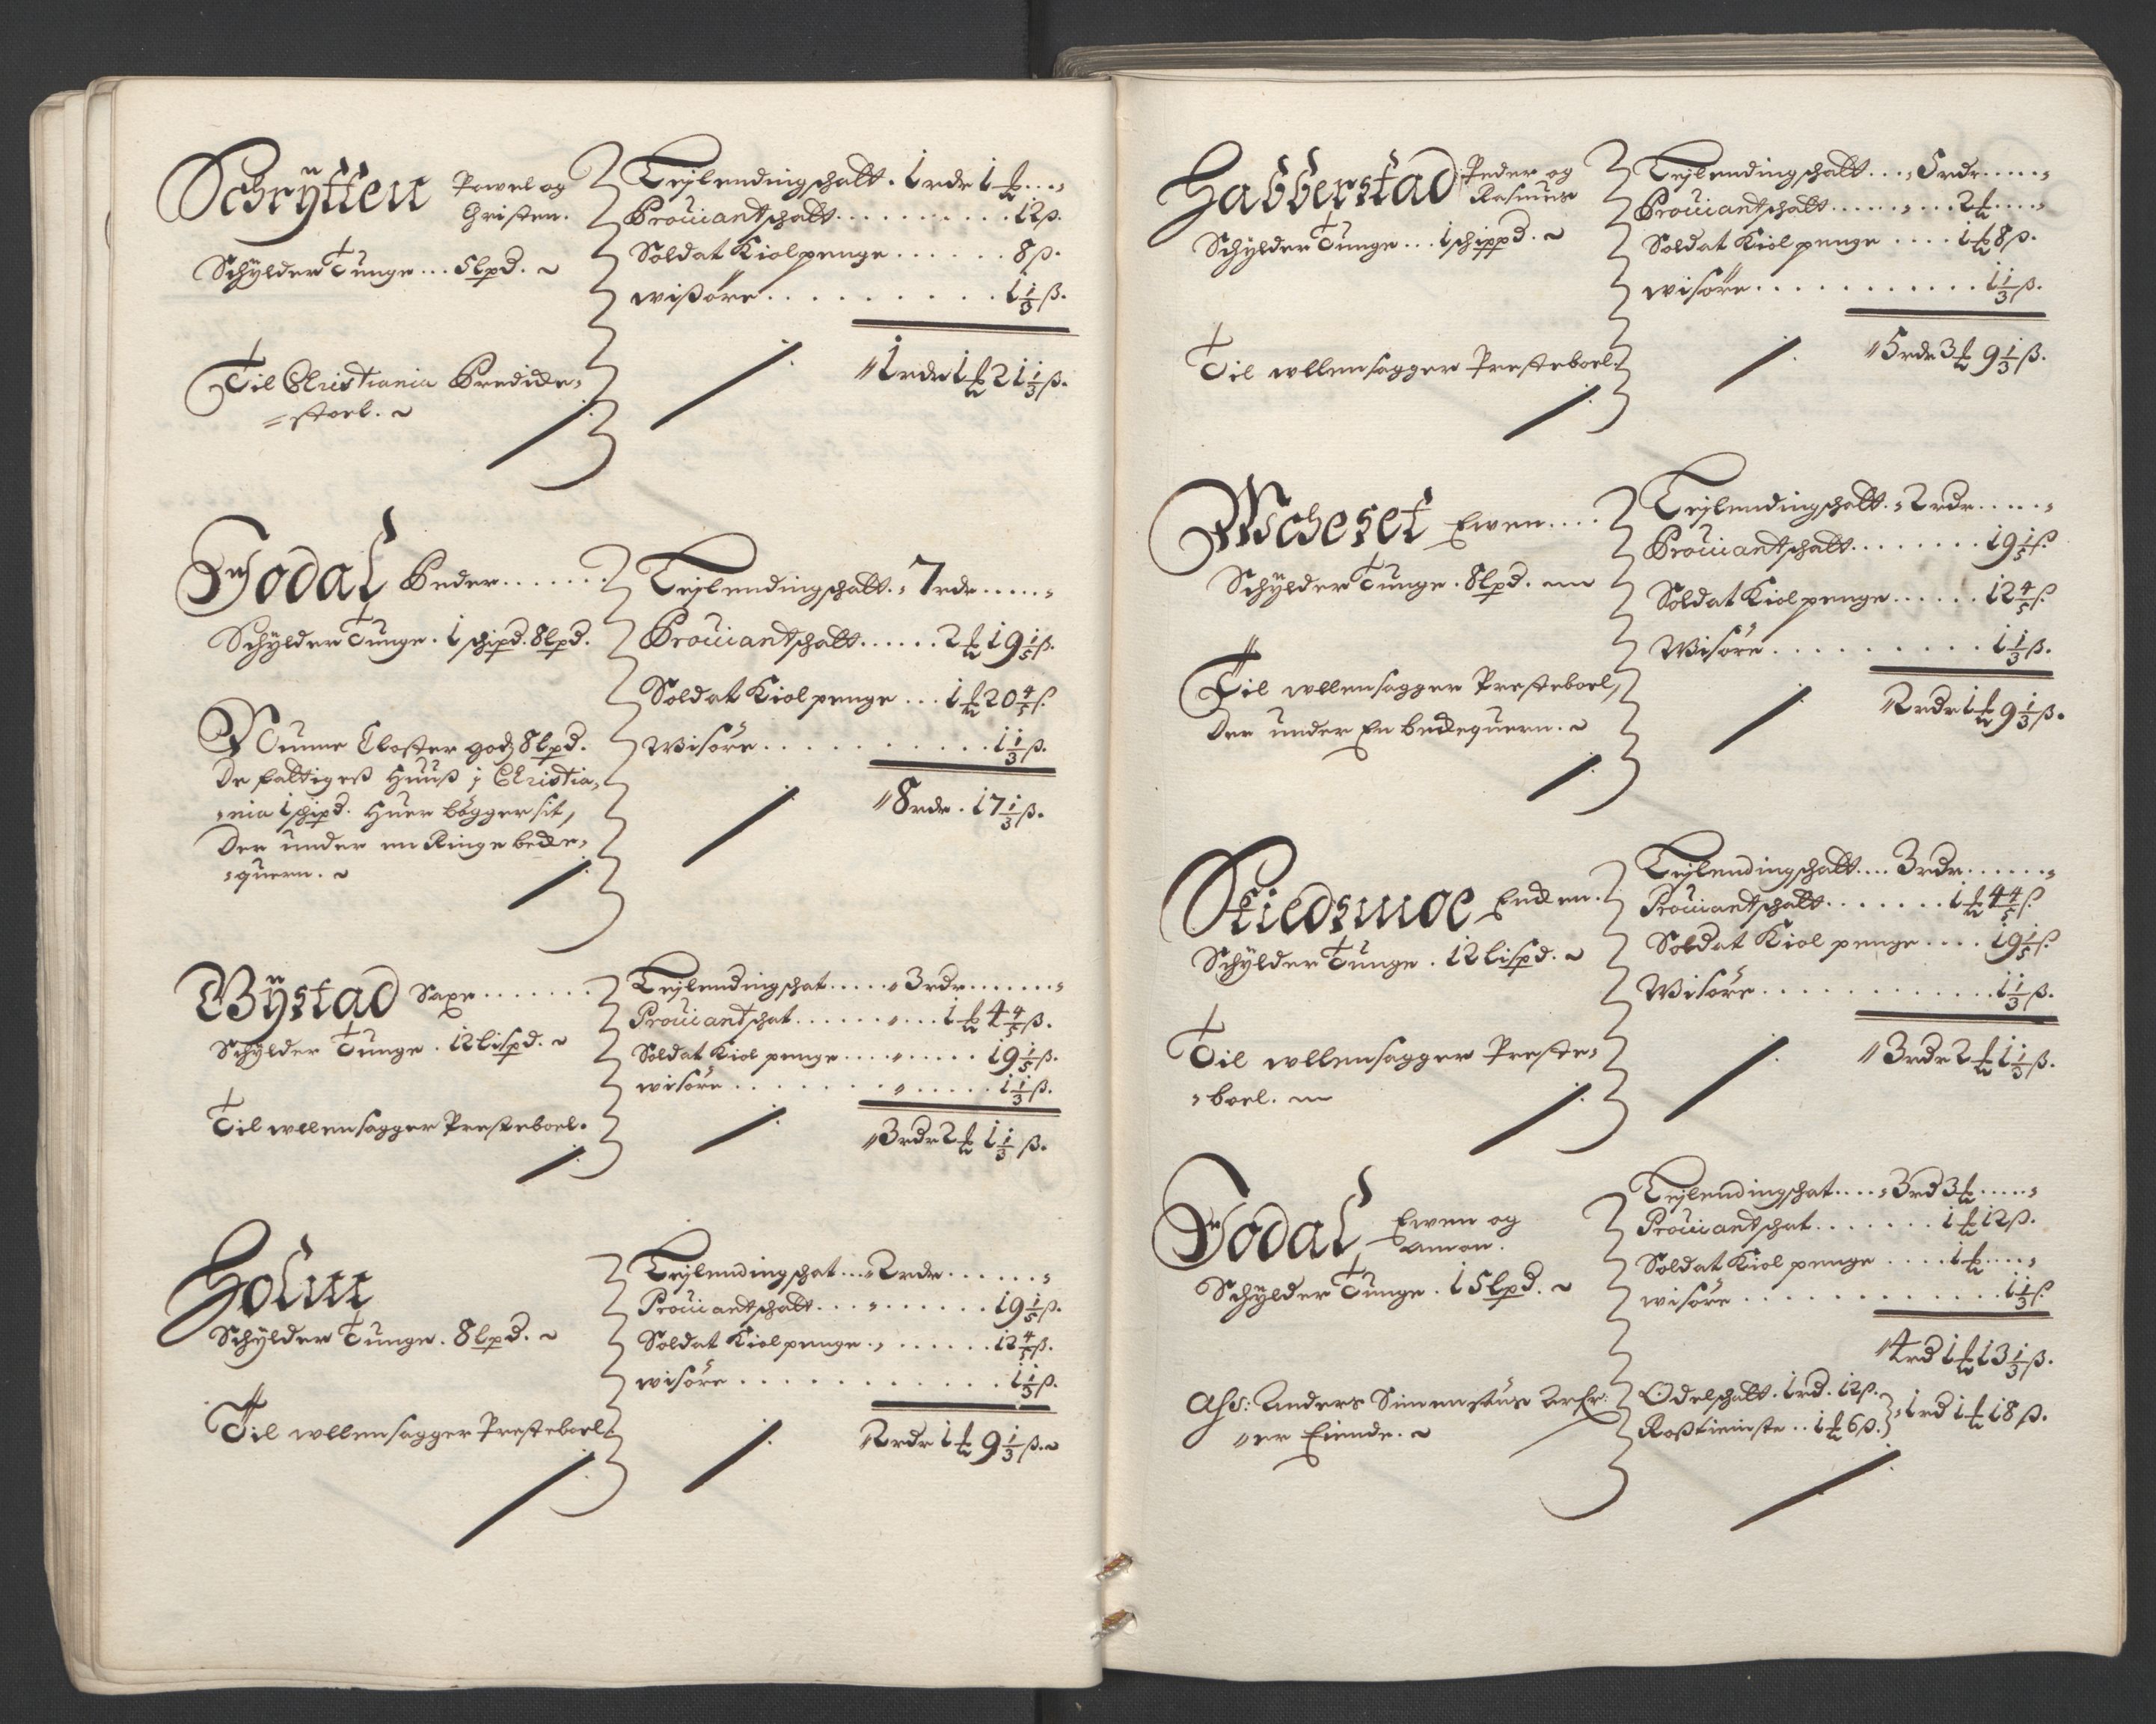 Schrÿtten Powel og
Christen.
Schÿlder Tunge... 5 lpd.
Til Christiania Predicke-
stoel.
Tejlendingschatt. 1 rdr 1 ℔...
Prouiantschatt.......... 12 ß.
Soldat Kiolpenge...... 8 ß.
wisöre......... 1 1/3 ß.
1 rdr 1 ℔ 21 1/3 ß.
Jodal Peder......
Schÿlder Tunge. 1 schipd. 8 lpd.
Nunne Closter godz 8 lpd.
De fattiges Huuß j Christia-
nia 1 schipd. Huer bögger sit,
Der under en Ringe becke-
quern.
Tejlendingschatt. 7 rdr.....
Prouiantschatt...... 2 ℔ 19 1/5 ß.
Soldat Kiolpenge... 1 ℔ 20 4/5 ß.
Wisöre.......... 1 1/3 ß.
8 rdr. 17 1/3 ß.
Bÿstad Saxe.......
Schÿlder Tunge. 12 lispd.
Til wllensagger Presteboel.
Tejlendingschat..... 3 rdr.......
Prouiantschat......... 1 ℔ 4 4/5 ß.
Soldat Kiol penge......... 19 1/5 ß.
wisöre............. 1 1/3 ß.
3 rdr 2 ℔ 1 1/3 ß.
Holm
Schÿlder Tunge. 8 lpd.
Til wllensagger Presteboel.
Tejlendingschat... 2 rdr......
Prouiantschatt......... 19 1/5 ß.
Soldat Kiolpenge....... 12 4/5 ß.
wisöre............ 1 1/3 ß.
2 rdr 1 ℔ 9 1/3 ß.
Habberstad Peder og
Rasmus
Schÿlder Tunge... 1 schippd.
Til wllensagger Presteboel.
Tejlendingschatt.... 5 rdr.....
Prouiantschatt......... 2 ℔....
Soldat Kiolpenge.... 1 ℔ 8 ß.
wisöre........... 1 1/3 ß.
5 rdr 3 ℔ 9 1/3 ß.
Mcheset Ewen....
Schÿlder Tunge. 8 lpd.
Til wllensagger Presteboel,
Der under En beckequern.
Tejlendingschatt. 2 rdr.....
Prouiantschatt........ 19 1/5 ß.
Soldat Kiolpenge...... 12 4/5 ß.
Wisöre......... 1 1/3 ß.
2 rdr 1 ℔ 9 1/3 ß.
Kiedsmoe
Schÿlder Tunge. 12 lispd.
Til wllensagger Preste-
boel.
Tejlendingschatt.... 3 rdr......
Prouiantschatt....... 1 ℔ 4 4/5 ß.
Soldat Kiol penge.... 19 1/5 ß.
Wisöre............ 1 1/3 ß.
3 rdr 2 ℔ 1 1/3 ß.
Jodal Ewen og
Amon.
Schÿlder Tunge. 15 lpd.
Ahs: Anders Simensöns
er Eiende.
Tejlendingschat.... 3 rd 3 ℔.....
Prouiantschat....... 1 ℔ 12 ß.
Soldat Kiol penge.... 1 ℔....
wisöre............ 1 1/3 ß.
4 rd 1 ℔ 13 1/3 ß.
Odelschatt. 1 rd. 12 ß.
Roßtieniste.. 1 ℔ 6 ß. 1 rd 1 ℔ 18 ß.